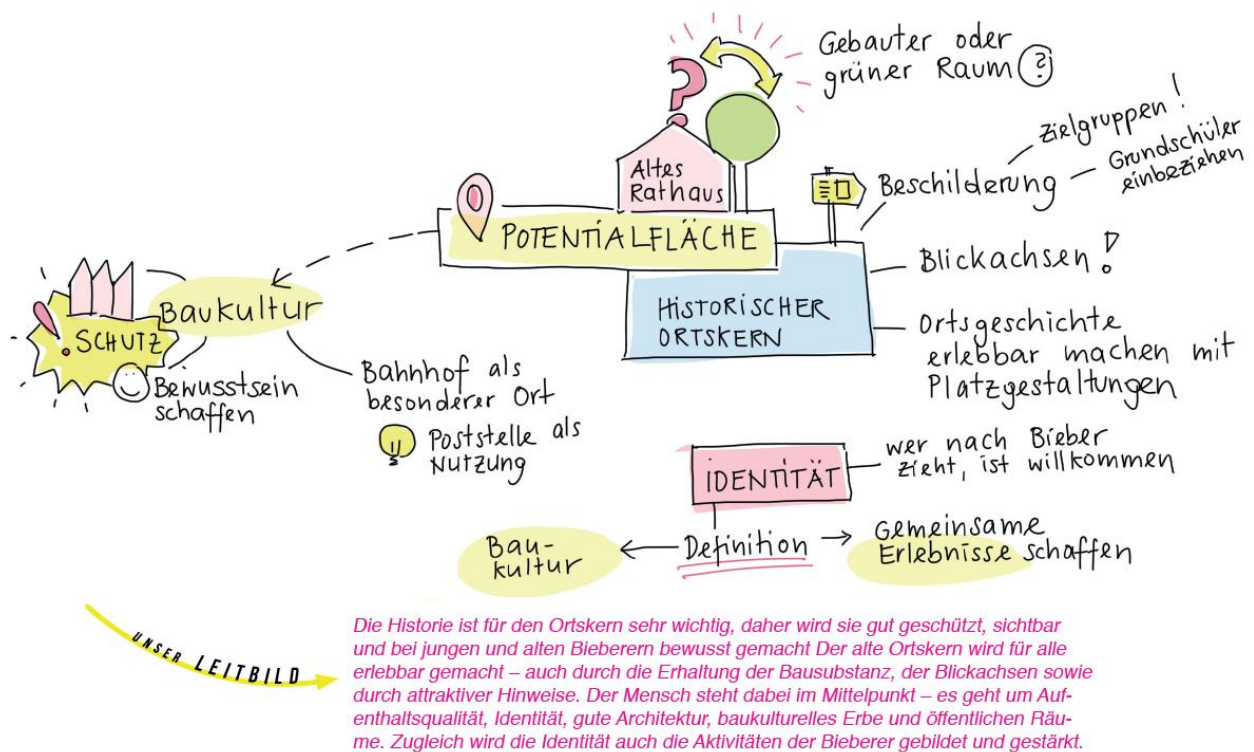 Gebauter oder
grüner Raum ?
?
Altes
Rathaus
Zielgruppen!
Beschilderung
Grundschüler
einbeziehen
POTENTIALFLÄCHE
Blickachsen!
HISTORISCHER
ORTSKERN
Ortsgeschichte
erlebbar machen mit
Platzgestaltungen
Baukultur
! SCHUTZ
Bewusstsein
schaffen
Bahnhof als
besonderer Ort
Poststelle als
Nutzung
IDENTITÄT
wer nach Bieber
zieht, ist willkommen
Definition
Bau-
kultur
Gemeinsame
Erlebnisse schaffen
UNSER LEITBILD
Die Historie ist für den Ortskern sehr wichtig, daher wird sie gut geschützt, sichtbar
und bei jungen und alten Bieberern bewusst gemacht Der alte Ortskern wird für alle
erlebbar gemacht – auch durch die Erhaltung der Bausubstanz, der Blickachsen sowie
durch attraktiver Hinweise. Der Mensch steht dabei im Mittelpunkt – es geht um Auf-
enthaltsqualität, Identität, gute Architektur, baukulturelles Erbe und öffentlichen Räu-
me. Zugleich wird die Identität auch die Aktivitäten der Bieberer gebildet und gestärkt.